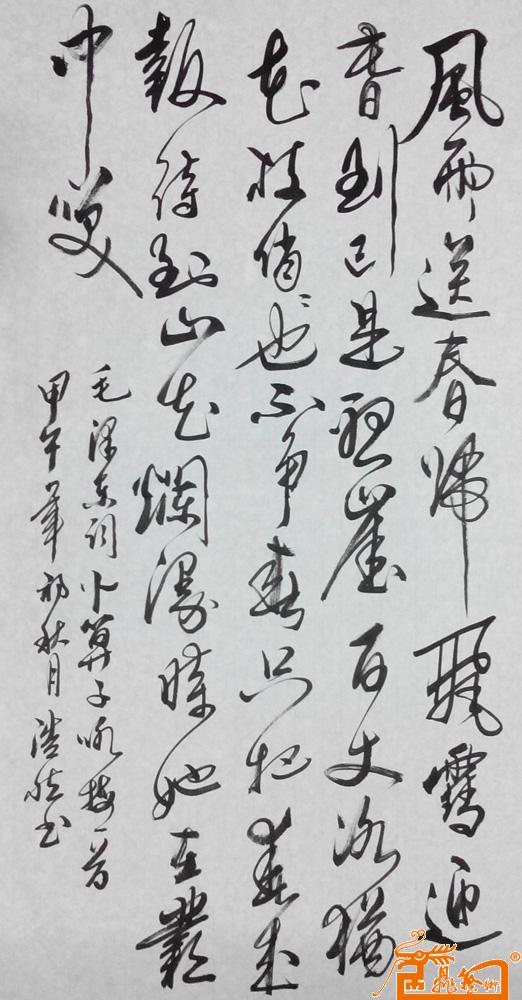 風雨送春歸飛雪迎
春到已是懸崖百丈冰猶
花枝俏〻也不争春只把春来
報待到山花爛漫時她在叢
中笑
毛澤東詞卜算子咏梅一首
甲午年初秋月浩书